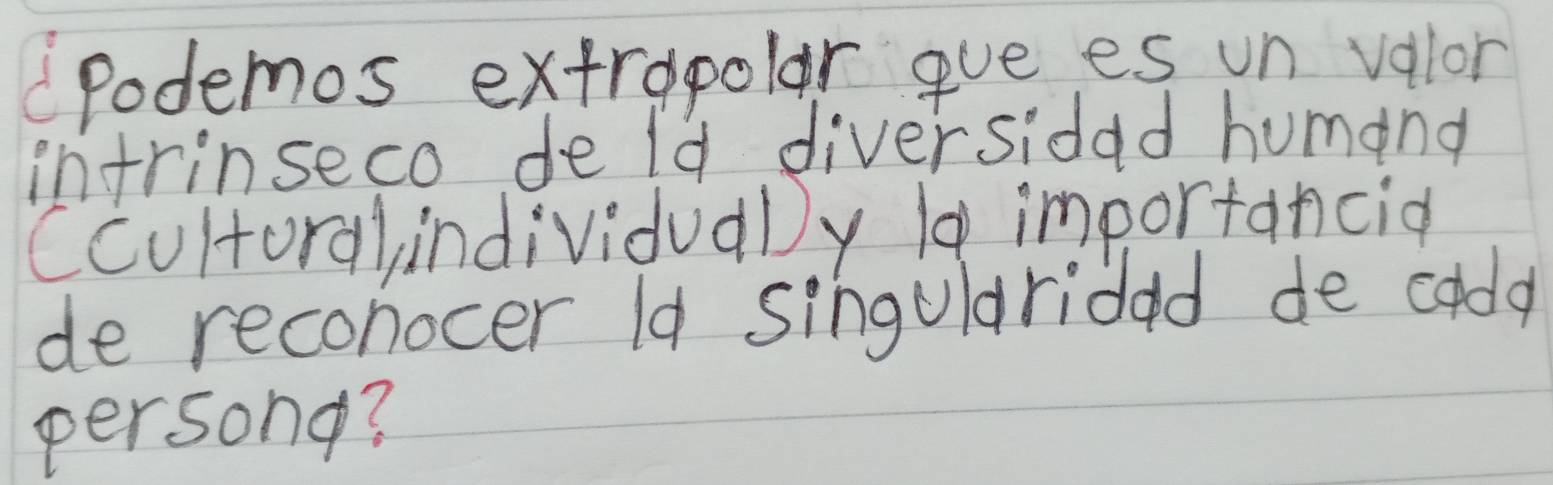 ¿Podemos extrapolar que es un valor
intrinseco de la diversidad humana
(cultural, individual) y la importancia
de reconocer la singularidad de cada
persona?